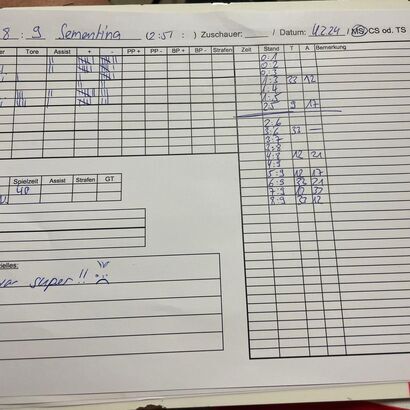 8 : 9 Sementina (2:5 : ) Zuschauer: / Datum: 4.2.24 / MS CS od. TS
Tore Assist + - PP + PP - BP + BP - Strafen Zeit Stand T A Bemerkung
0:1
0:2
0:3
1:3 33 12
1:4
1:5
2:5 9 17
2:6
3:6 33 —
3:7
3:8
4:8 12 21
4:9
5:9 12 17
6:9 21
7:9
8:9 12
Spielzeit Assist Strafen GT
40
super!!